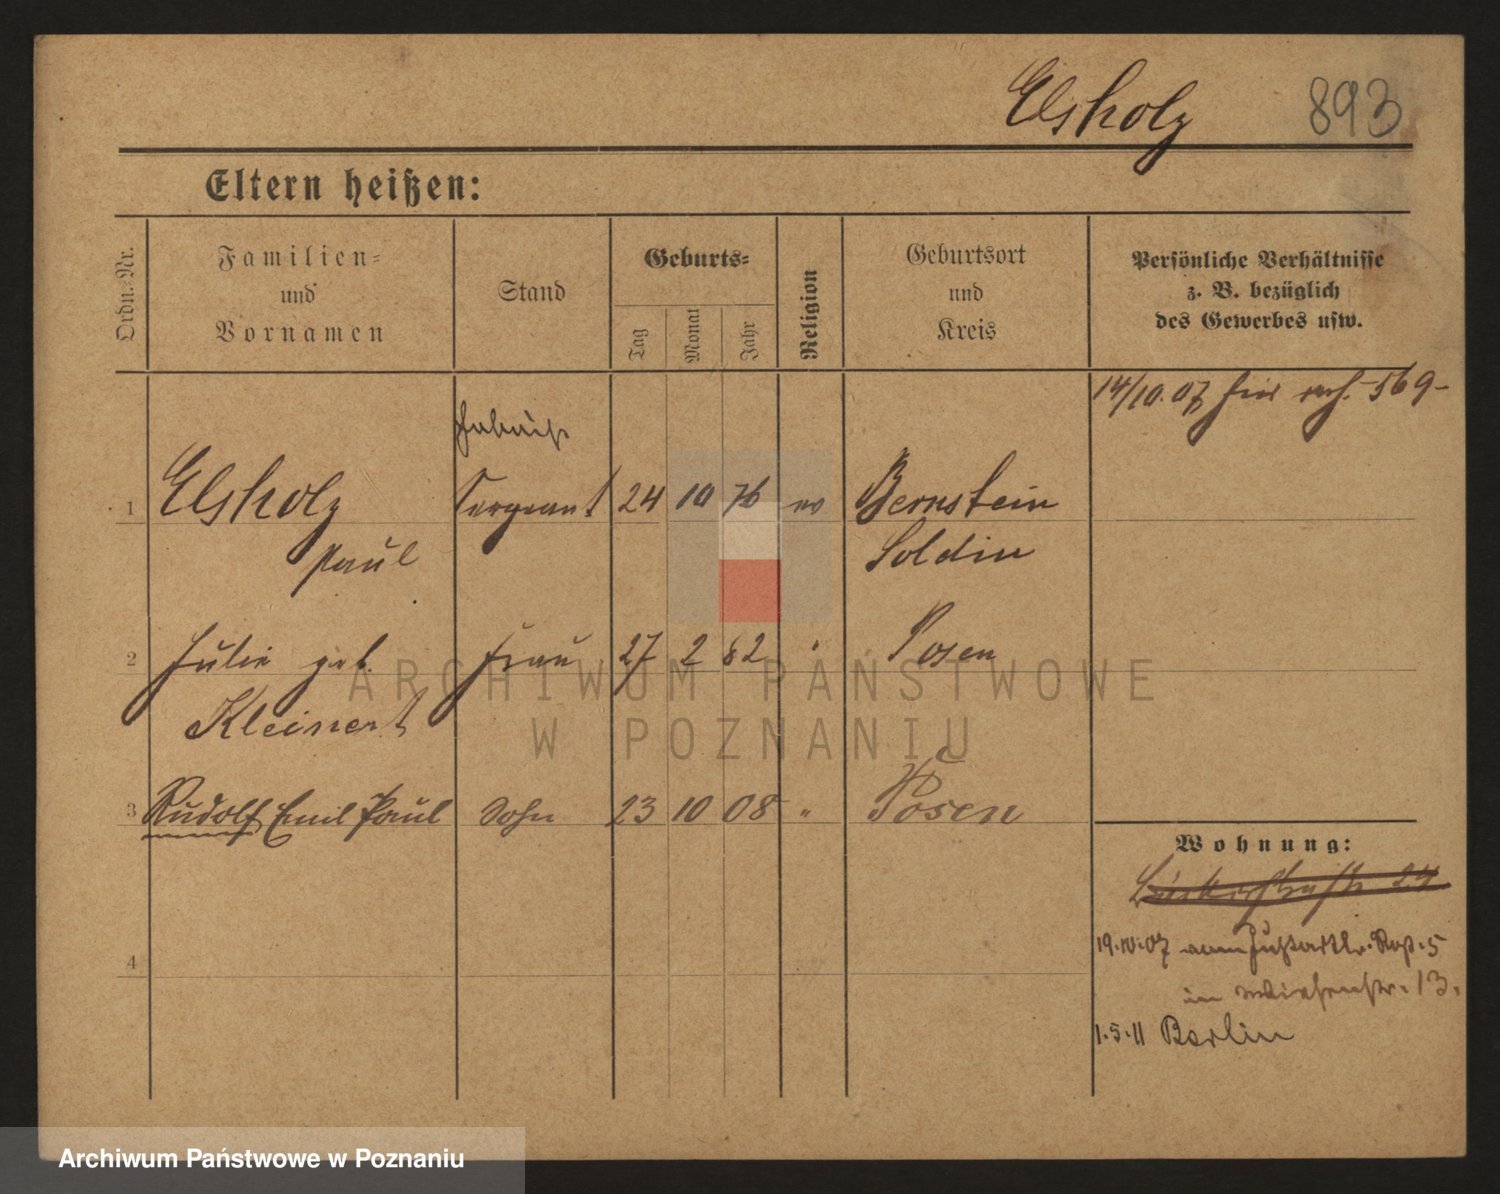 Elsholz 893
Eltern heißen:
Ordn.=Nr.
Familien=
und
Vornamen
Stand
Geburts=
Tag
Monat
Jahr
Religion
Geburtsort
und
Kreis
Persönliche Verhältnisse
z. B. bezüglich
des Gewerbes usw.
14/10.07 hier 569-
1 Elsholz Sergeant 24 10 76 ev Bernstein
Paul Soldin
2 Julie geb. Frau 27 2 82 " Posen
Kleinert
3 Rudolf Emil Paul Sohn 23 10 08 " Posen
Wohnung:
24
19.10.07 5
in 13.
4
1.5.11 Berlin
ARCHIWUM PAŃSTWOWE
W POZNANIU
Archiwum Państwowe w Poznaniu